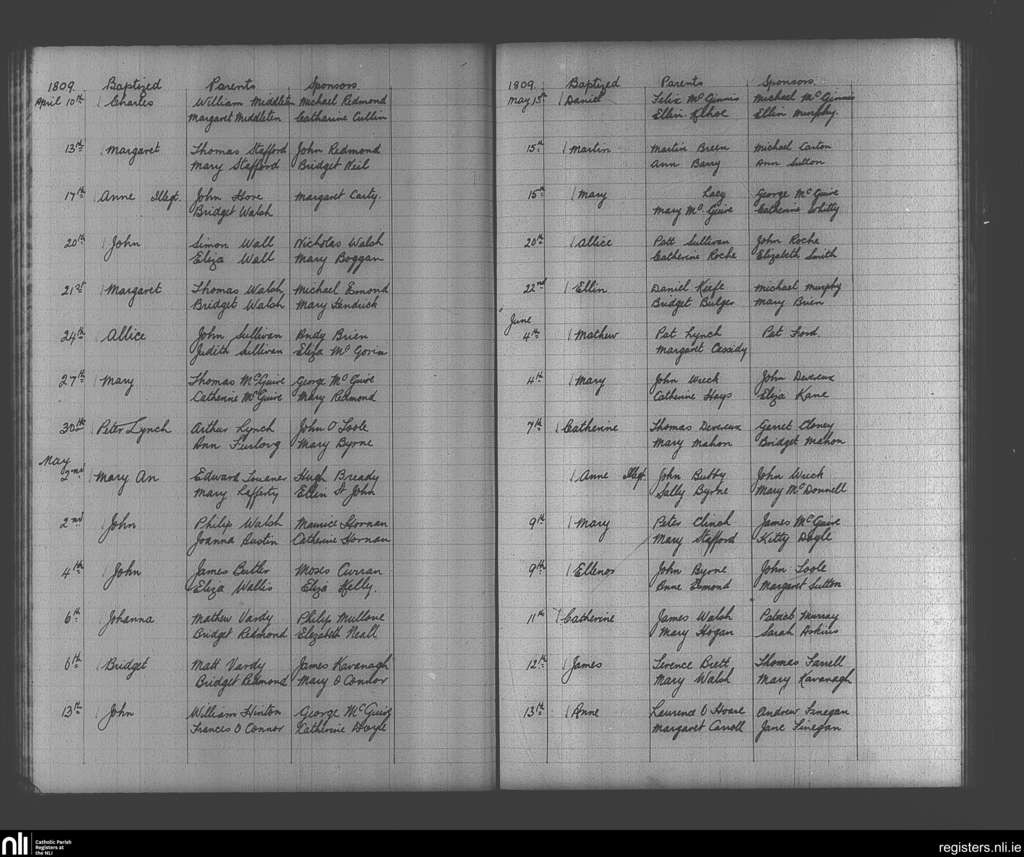 1809. Baptized Parents Sponsors
April 10th Charles William Middleton Michael Redmond
Margaret Middleton Catharine Cullin
13th Margaret Thomas Stafford John Redmond
Mary Stafford Bridget Keil
17th Anne Illegt. John Hore Margaret Carty.
Bridget Walsh
20th John Simon Wall Nicholas Walsh
Eliza Wall Mary Boggan
21st Margaret Thomas Walsh Michael Esmond
Bridget Walsh Mary Hendrick
24th Allice John Sullivan Andy Brien
Judith Sullivan Eliza McGovin
27th Mary Thomas McGuire George McGuire
Catherine McGuire Mary Redmond
30th Peter Lynch Arthur Lynch John O Toole
Ann Furlong Mary Byrne
May
2nd Mary An Edward Hugh Bready
Mary Lafferty Ellen St John
2nd John Philip Walsh Maurice Hornan
Joanna Austin Catherine Hornan
4th John James Butler Moses Curran
Eliza Wallis Eliza Kelly.
6th Johanna Mathew Vardy Philip Mullone
Bridget Redmond Elizabeth Neall
6th Bridget Matt Vardy James Kavanagh
Bridget Redmond Mary O Connor
13th John William Hinton George McGuire
Frances O Connor Catherine Doyle
1809. Baptized Parents Sponsors.
May 15th Daniel Felix McGinnis Michael McGinnis
Ellin Kehoe Ellin Murphy.
15th Martin Martin Breen Michael Carton
Ann Barry Ann Sutton
15th Mary Lacy George McGuire
Mary McGuire Catherine Whitty
20th Allice Patt Sullivan John Roche
Catherine Roche Elizabeth Smith
22nd Ellin Daniel Keefe Michael Murphy
Bridget Bulger Mary Brien
June
4th Mathew Pat Lynch Pat Ford.
Margaret Cassidy
4th Mary John Wreck John Devereux
Catherine Hays Eliza Kane
7th Catherine Thomas Devereux Garret Cloney
Mary Mahon Bridget Mahon
Anne Illegt. John Bubby John Wreck
Sally Byrne Mary McDonnell
9th Mary Peter Clinch James McGuire
Mary Stafford Kitty Doyle
9th Ellenor John Byrne John Toole
Anne Esmond Margaret Sutton
11th Catherine James Walsh Patrick Murray
Mary Hogan Sarah Askins
12th James Terence Brett Thomas Farrell
Mary Walsh Mary Kavanagh
13th Anne Laurence O Hoare Andrew Finegan
Margaret Carroll Jane Finegan
nli Catholic Parish
Registers at
the NLI
registers.nli.ie